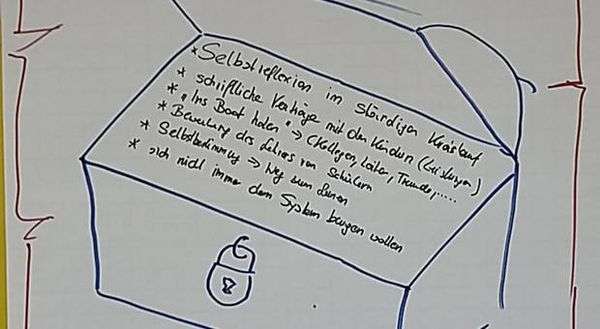 * Selbstreflexion im ständigen Kreislauf
* schriftliche Verträge mit den Kindern (Leistungen)
* "Ins Boot holen" → (Kollegen, Leiter, Freunde, .....
* Bewertung des Lehrers von Schülern
* Selbstbestimmung → Weg zum Lernen
* sich nicht immer dem System beugen wollen